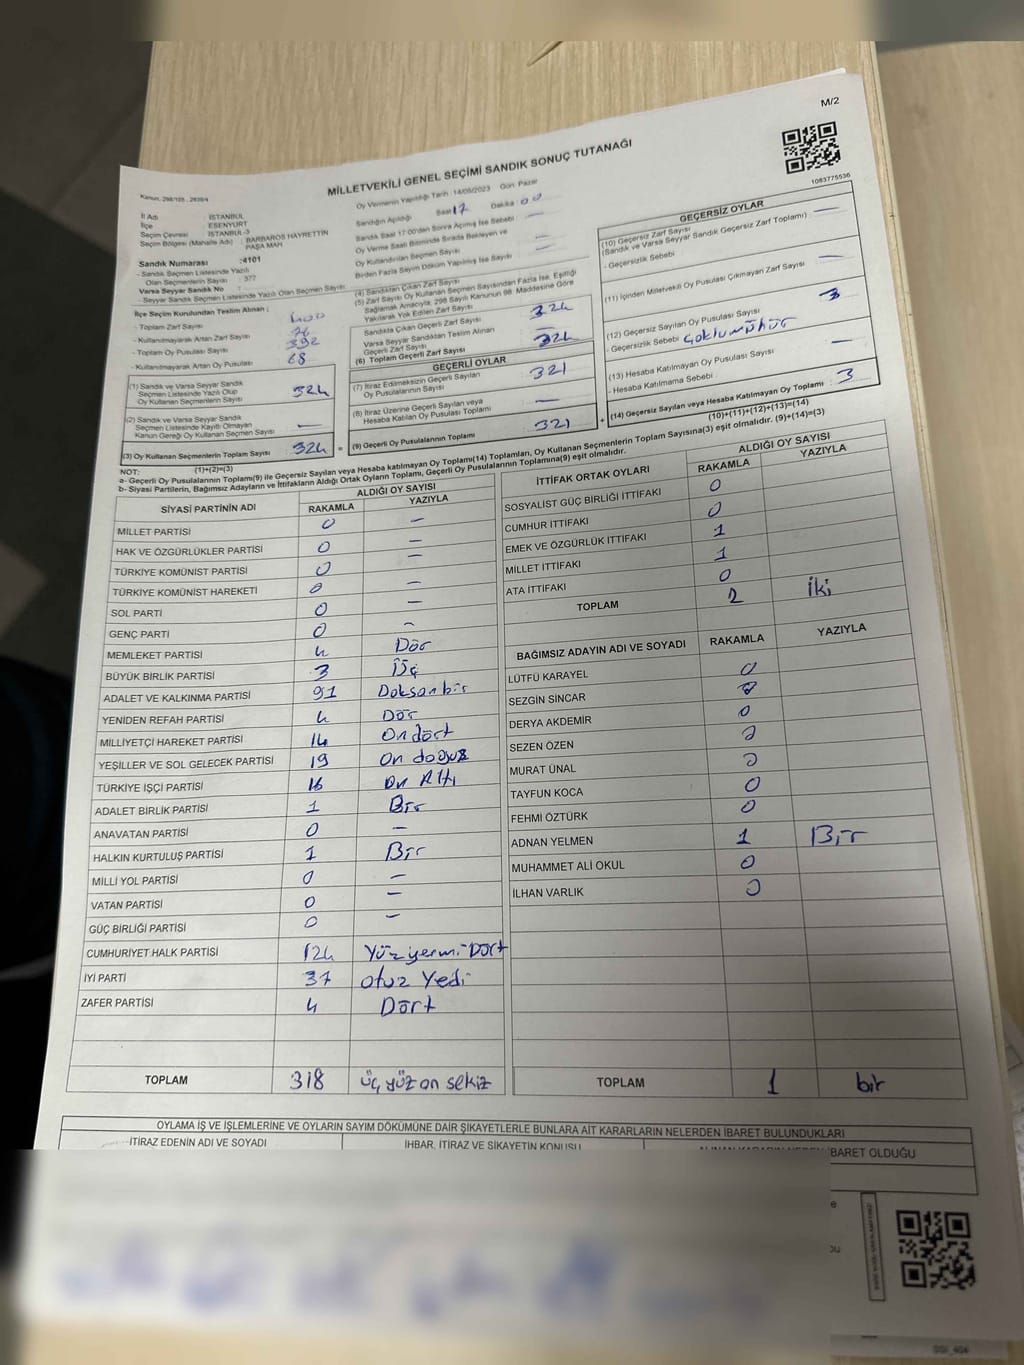 M/2
MİLLETVEKİLİ GENEL SEÇİMİ SANDIK SONUÇ TUTANAĞI
1083775536
Oy Vermenin Yapıldığı Tarih : 14/05/2023 Gün: Pazar
İl Adı : İSTANBUL
İlçe : ESENYURT
Seçim Çevresi : İSTANBUL-3
Seçim Bölgesi (Mahalle Adı) : BARBAROS HAYRETTİN PAŞA MAH
Sandık Numarası : 4101
- Sandık Seçmen Listesinde Yazılı
Olan Seçmenlerin Sayısı : 377
Varsa Seyyar Sandık No
- Seyyar Sandık Seçmen Listesinde Yazılı Olan Seçmen Sayısı :
Sandığın Açıldığı Saat 17 Dakika : 00
Sandık Saat 17:00'dan Sonra Açılmış İse Sebebi —
Oy Verme Saati Bitiminde Sırada Bekleyen ve
Oy Kullandırılan Seçmen Sayısı —
Birden Fazla Sayım Döküm Yapılmış İse Sayısı —
İlçe Seçim Kurulundan Teslim Alınan :
- Toplam Zarf Sayısı 400
- Kullanılmayarak Artan Zarf Sayısı 76
- Toplam Oy Pusulası Sayısı 392
- Kullanılmayarak Artan Oy Pusulası 68
(1) Sandık ve Varsa Seyyar Sandık
Seçmen Listesinde Yazılı Olup
Oy Kullanan Seçmen Sayısı 324
(2) Sandık ve Varsa Seyyar Sandık
Seçmen Listesinde Kayıtlı Olmayan
Kanun Gereği Oy Kullanan Seçmen Sayısı —
(3) Oy Kullanan Seçmenlerin Toplam Sayısı 324
(1)+(2)=(3)
(4) Sandıktan Çıkan Zarf Sayısı
(5) Zarf Sayısı Oy Kullanan Seçmen Sayısından Fazla İse, Eşitliği
Sağlamak Amacıyla, 298 Sayılı Kanunun 98. Maddesine Göre
Yakılarak Yok Edilen Zarf Sayısı
Sandıkta Çıkan Geçerli Zarf Sayısı 324
Varsa Seyyar Sandıktan Teslim Alınan
Geçerli Zarf Sayısı —
(6) Toplam Geçerli Zarf Sayısı 324
GEÇERLİ OYLAR
(7) İtiraz Edilmeksizin Geçerli Sayılan
Oy Pusulalarının Sayısı 321
(8) İtiraz Üzerine Geçerli Sayılan veya
Hesaba Katılan Oy Pusulası Toplamı —
(9) Geçerli Oy Pusulalarının Toplamı 321
GEÇERSİZ OYLAR
(10) Geçersiz Zarf Sayısı
(Sandık ve Varsa Seyyar Sandık Geçersiz Zarf Toplamı) —
- Geçersizlik Sebebi
(11) İçinden Milletvekili Oy Pusulası Çıkmayan Zarf Sayısı —
(12) Geçersiz Sayılan Oy Pusulası Sayısı 3
- Geçersizlik Sebebi
(13) Hesaba Katılmayan Oy Pusulası Sayısı —
- Hesaba Katılmama Sebebi :
(14) Geçersiz Sayılan veya Hesaba Katılmayan Oy Toplamı : 3
(10)+(11)+(12)+(13)=(14)
NOT:
a- Geçerli Oy Pusulalarının Toplamı(9) ile Geçersiz Sayılan veya Hesaba katılmayan Oy Toplamı(14) Toplamları, Oy Kullanan Seçmenlerin Toplam Sayısına(3) eşit olmalıdır. (9)+(14)=(3)
b- Siyasi Partilerin, Bağımsız Adayların ve İttifakların Aldığı Ortak Oyların Toplamı, Geçerli Oy Pusulalarının Toplamına(9) eşit olmalıdır.
SİYASİ PARTİNİN ADI ALDIĞI OY SAYISI
RAKAMLA YAZIYLA
MİLLET PARTİSİ 0 —
HAK VE ÖZGÜRLÜKLER PARTİSİ 0 —
TÜRKİYE KOMÜNİST PARTİSİ 0 —
TÜRKİYE KOMÜNİST HAREKETİ 0 —
SOL PARTİ 0 —
GENÇ PARTİ 0 —
MEMLEKET PARTİSİ 4 Dör
BÜYÜK BİRLİK PARTİSİ 3 Üç
ADALET VE KALKINMA PARTİSİ 91 Doksanbir
YENİDEN REFAH PARTİSİ 4 Dör
MİLLİYETÇİ HAREKET PARTİSİ 14 On dört
YEŞİLLER VE SOL GELECEK PARTİSİ 19 On doğuz
TÜRKİYE İŞÇİ PARTİSİ 16 On Altı
ADALET BİRLİK PARTİSİ 1 Bir
ANAVATAN PARTİSİ 0 —
HALKIN KURTULUŞ PARTİSİ 1 Bir
MİLLİ YOL PARTİSİ 0 —
VATAN PARTİSİ 0 —
GÜÇ BİRLİĞİ PARTİSİ 0 —
CUMHURİYET HALK PARTİSİ 124 Yüz yermi Dört
İYİ PARTİ 37 otuz Yedi
ZAFER PARTİSİ 4 Dört
TOPLAM 318 üç yüz on sekiz
İTTİFAK ORTAK OYLARI ALDIĞI OY SAYISI
RAKAMLA YAZIYLA
SOSYALİST GÜÇ BİRLİĞİ İTTİFAKI 0
CUMHUR İTTİFAKI 0
EMEK VE ÖZGÜRLÜK İTTİFAKI 1
MİLLET İTTİFAKI 1
ATA İTTİFAKI 0
TOPLAM 2 İki
BAĞIMSIZ ADAYIN ADI VE SOYADI RAKAMLA YAZIYLA
LÜTFÜ KARAYEL 0
SEZGİN SİNCAR 0
DERYA AKDEMİR 0
SEZEN ÖZEN 0
MURAT ÜNAL 0
TAYFUN KOCA 0
FEHMİ ÖZTÜRK 0
ADNAN YELMEN 1 Bir
MUHAMMET ALİ OKUL 0
İLHAN VARLIK 0
TOPLAM 1 bir
OYLAMA İŞ VE İŞLEMLERİNE VE OYLARIN SAYIM DÖKÜMÜNE DAİR ŞİKAYETLERLE BUNLARA AİT KARARLARIN NELERDEN İBARET BULUNDUKLARI
İTİRAZ EDENİN ADI VE SOYADI İHBAR, İTİRAZ VE ŞİKAYETİN KONUSU İBARET OLDUĞU